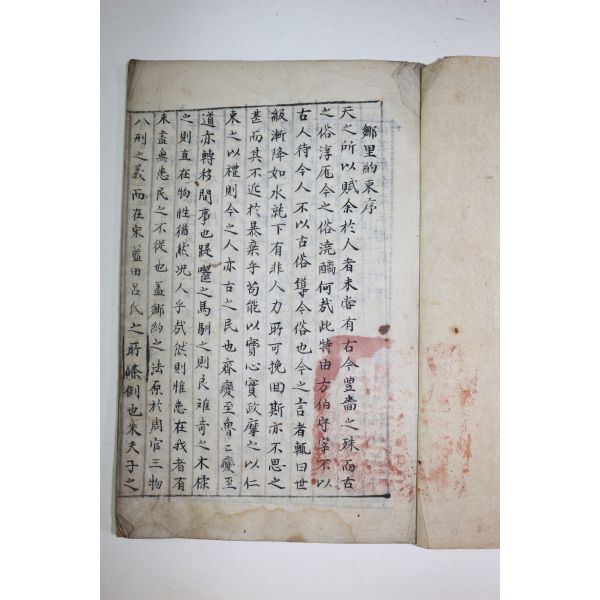 鄉里約束序
天之所以賦余於人者未嘗有古今豊嗇之殊而古
之俗淳厖今之俗澆醨何哉此特由方伯守宰不以
古人待今人不以古俗導今俗也今之言者輒曰世
級漸降如水就下有非人力所可挽回斯亦不思之
甚而其不近於暴棄乎苟能以實心實政摩之以仁
束之以禮則今之人亦古之民也齊變至魯魯變至
道亦轉移間事也踶囓之馬馴之則良離奇之木檃
之則直在物性猶然况人乎哉然則惟患在我者有
未盡無患民之不從也盖鄉約之法原於周官三物
八刑之義而在宋藍田呂氏之所條例也朱夫子之